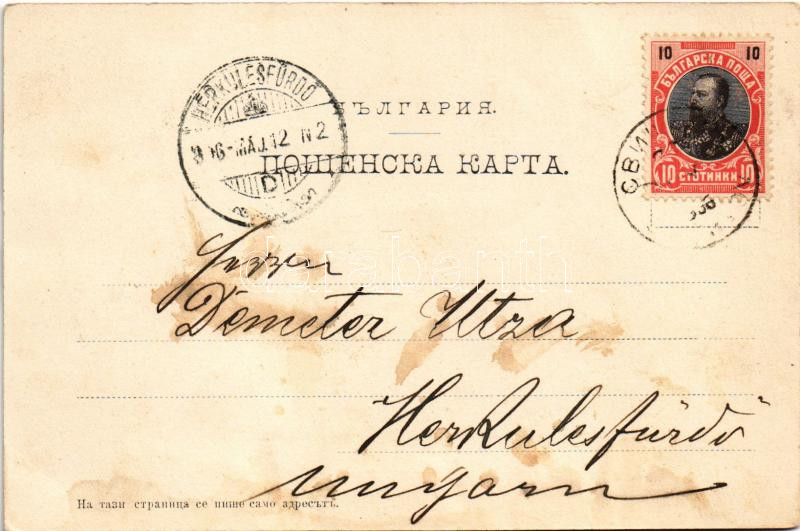 HERKULESFÜRDŐ
MÁJ. 12 N 2
D
10 10
БЪЛГАРСКА ПОЩА
10 СТОТИНКИ 10
БЪЛГАРИЯ.
ПОЩЕНСКА КАРТА.
Herrn
Demeter Utza
Herkulesfürdő
Ungarn
На тази страница се пише само адресътъ.
databanth